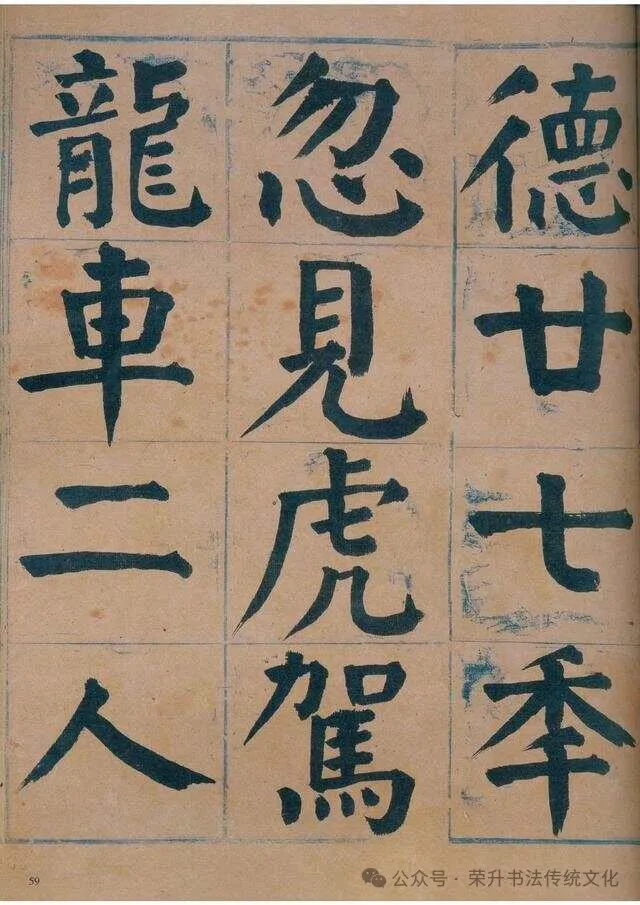 德廿七秊
忽見虎駕
龍車二人
59
公众号·荣升书法传统文化